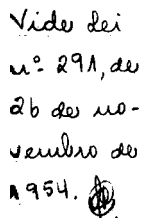 Vide Lei
nº 291, de
26 de no-
vembro de
1954.